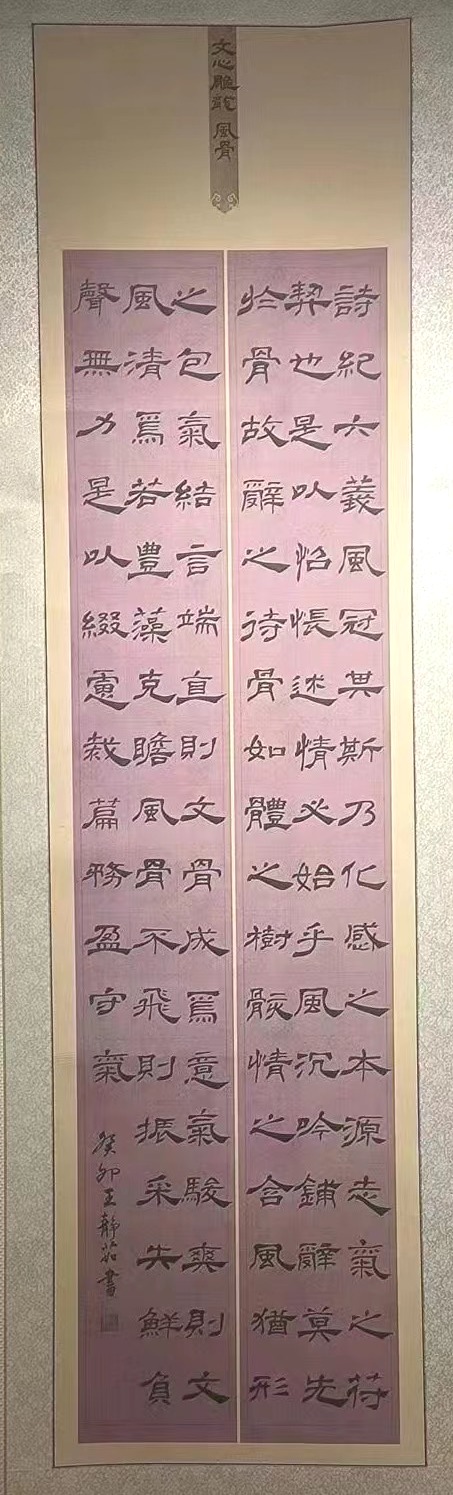 文心雕龍 風骨
詩紀六義風冠其斯乃化感之本源志氣之符
契也是以怊悵述情必始乎風沉吟鋪辭莫先
於骨故辭之待骨如體之樹骸情之含風猶形
之包氣結言端直則文骨成焉意氣駿爽則文
風清焉若豐藻克贍風骨不飛則振采失鮮負
聲無力是以綴慮裁篇務盈守氣
癸卯王靜茹書